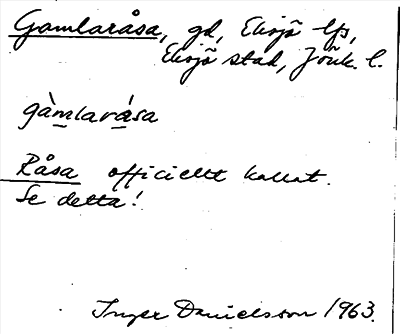 Gamlaråsa, gd, Eksjö lfs,
Eksjö stad, Jönk. l.
gàmlarása
Råsa officiellt kallat.
Se detta!
Inger Danielsson 1963.